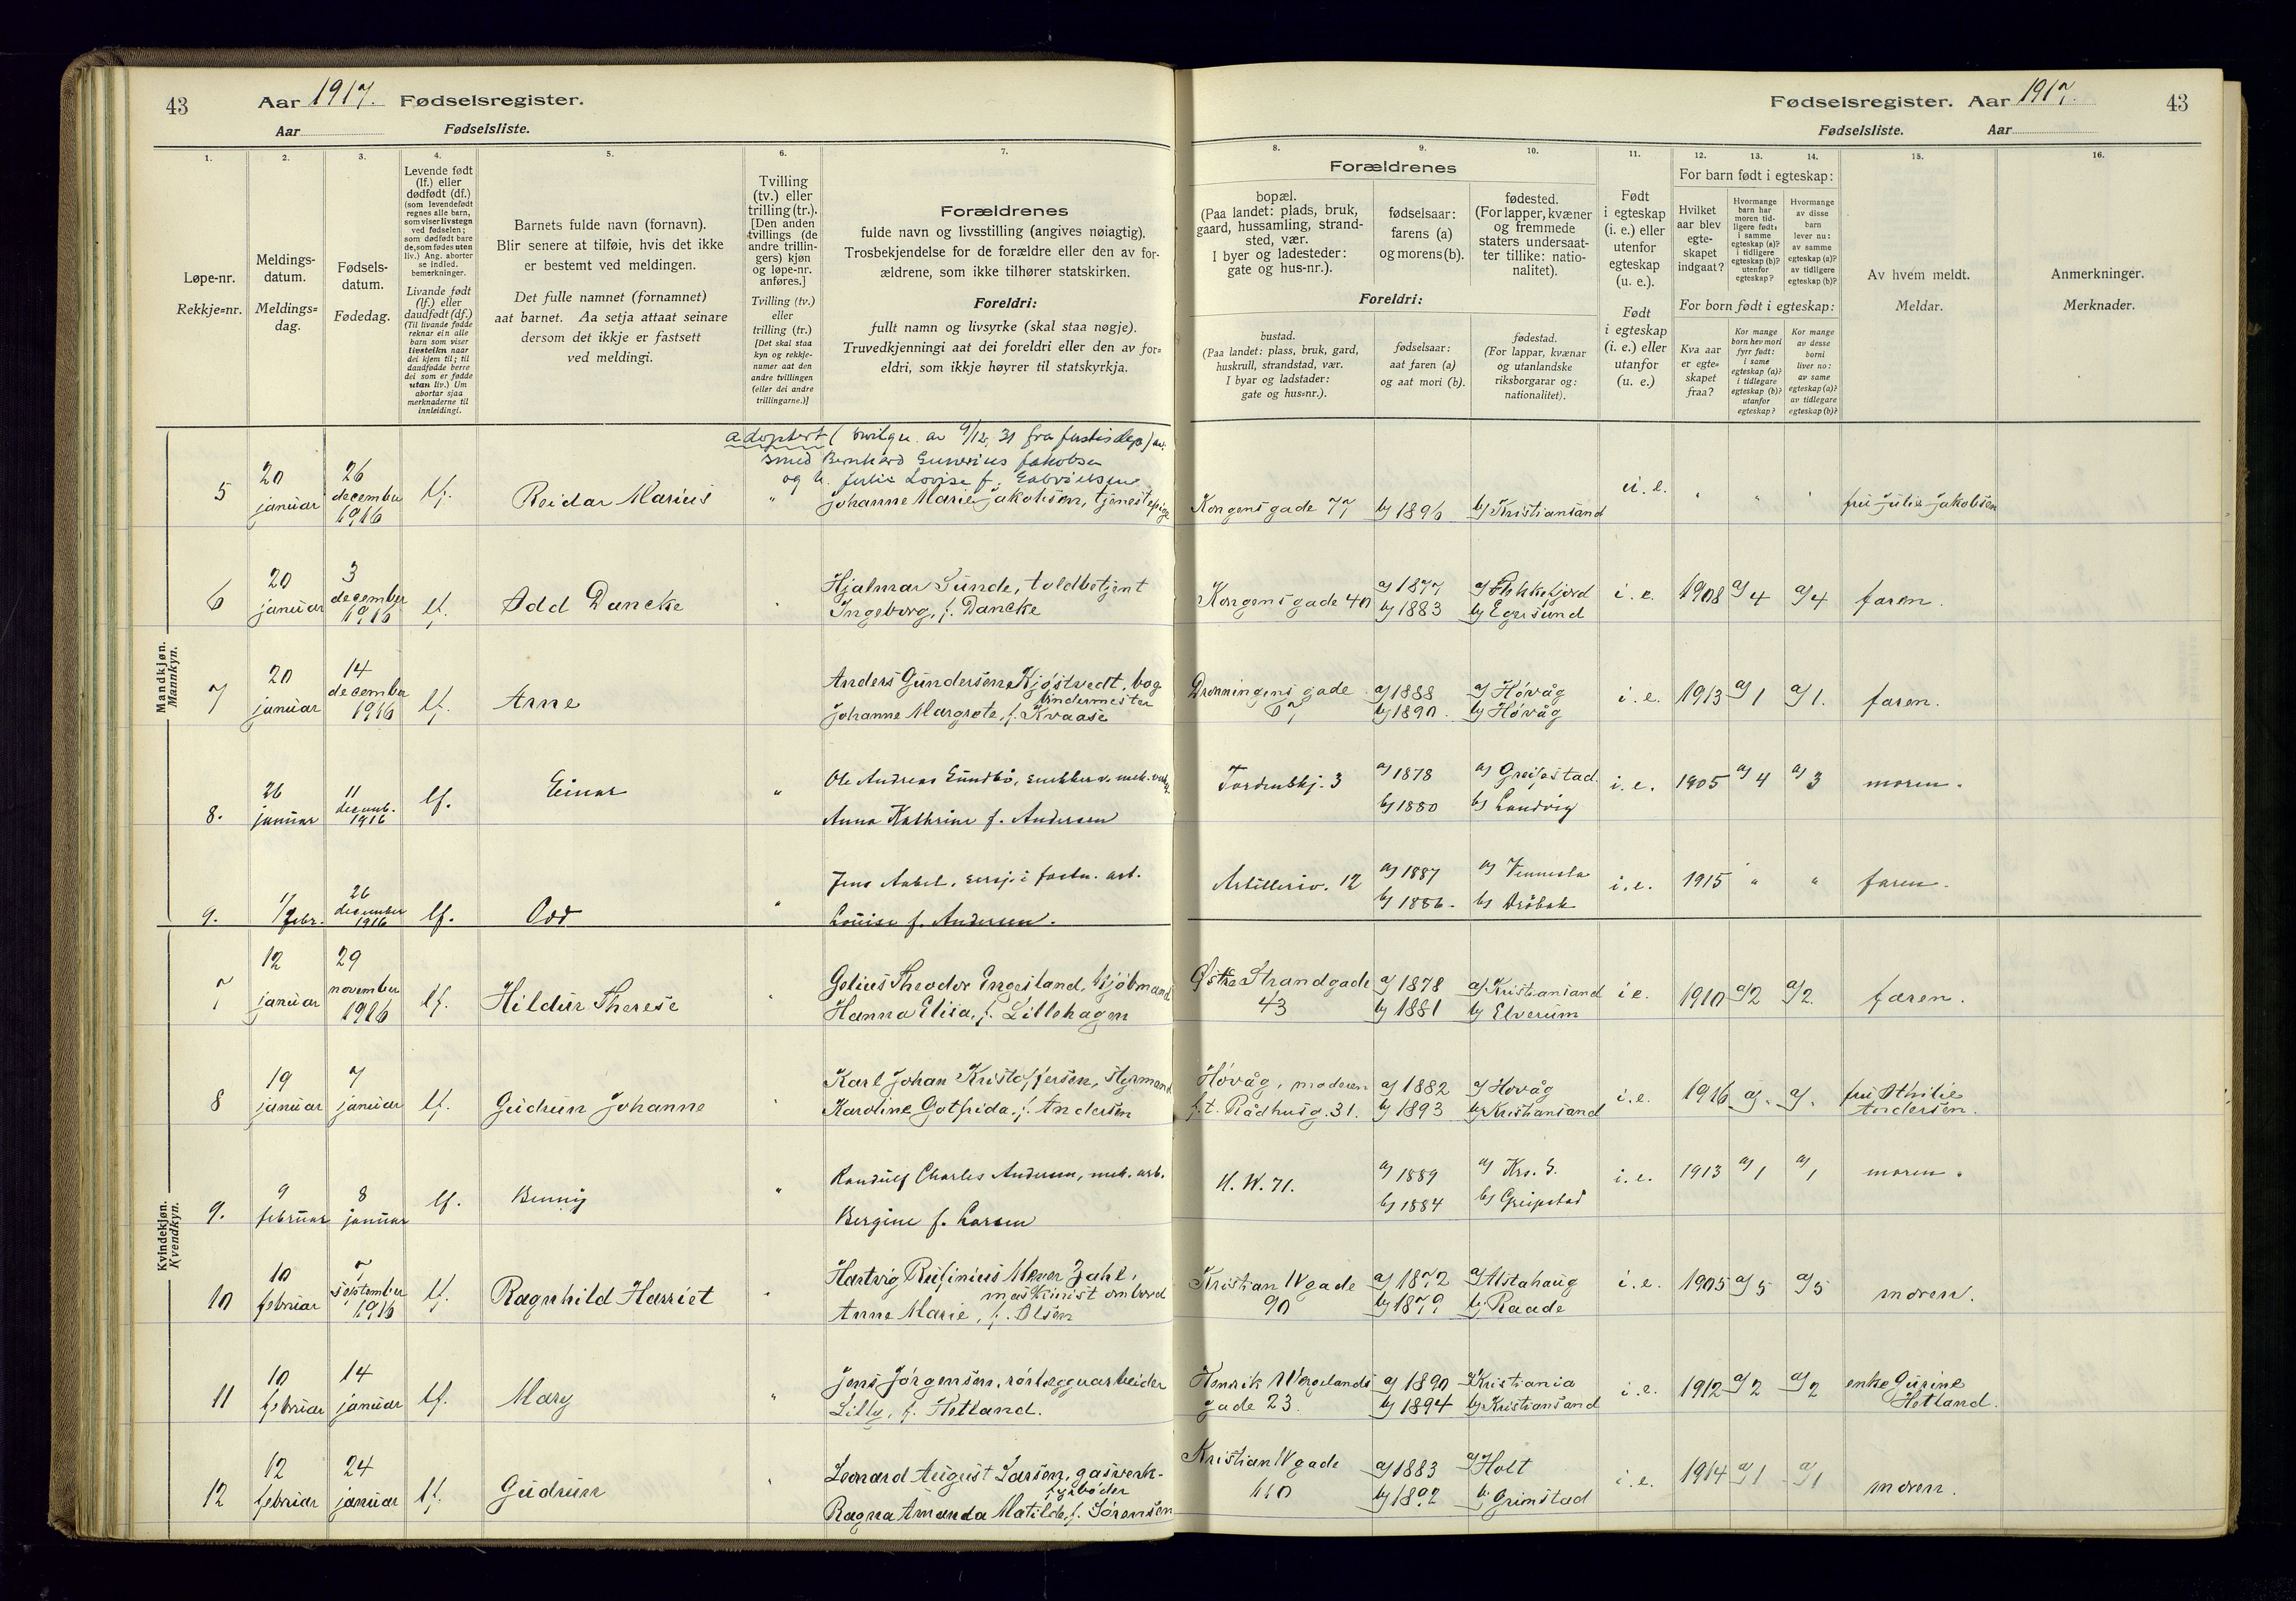 43
Aar 1917. Fødselsregister.
Aar Fødselsliste.
Fødselsregister. Aar 1917.
43
Fødselsliste. Aar
1.
Løpe-nr.
Rekkje=nr.
2.
Meldings-
datum.
Meldings=
dag.
3.
Fødsels-
datum.
Fødedag.
4.
Levende født
(lf.) eller
dødfødt (df.)
(som levendefødt
regnes alle barn,
som viser livstegn
ved fødselen;
som dødfødt bare
de, som fødes uten
liv.) Ang. aborter
se indled.
bemerkninger.
Livande født
(lf.) eller
daudfødt (df.)
(Til livande fødde
reknar ein alle
barn som viser
livsteikn naar
dei kjem til; til
daudfødde berre
dei som er fødde
utan liv.) Um
abortar sjaa
merknaderne til
innleidingi.
5.
Barnets fulde navn (fornavn).
Blir senere at tilføie, hvis det ikke
er bestemt ved meldingen.
Det fulle namnet (fornamnet)
aat barnet. Aa setja attaat seinare
dersom det ikkje er fastsett
ved meldingi.
6.
Tvilling
(tv.) eller
trilling (tr.).
[Den anden
tvillings (de
andre trillin-
gers) kjøn
og løpe-nr.
anføres.]
Tvilling (tv.)
eller
trilling (tr.)
[Det skal staa
kyn og rekkje-
numer aat den
andre tvillingen
(eller dei andre
trillingarne.)]
7.
Forældrenes
fulde navn og livsstilling (angives nøiagtig).
Trosbekjendelse for de forældre eller den av for-
ældrene, som ikke tilhører statskirken.
Foreldri:
fullt namn og livsyrke (skal staa nøgje).
Truvedkjenningi aat dei foreldri eller den av for=
eldri, som ikkje høyrer til statskyrkja.
8.
Forældrenes
bopæl.
(Paa landet: plads, bruk,
gaard, hussamling, strand-
sted, vær.
I byer og ladesteder:
gate og hus-nr.).
Foreldri:
bustad.
(Paa landet: plass, bruk, gard,
huskrull, strandstad, vær.
I byar og ladstader:
gate og hus=nr.).
9.
fødselsaar:
farens (a)
og morens (b).
fødselsaar:
aat faren (a)
og aat mori (b).
10.
fødested.
(For lapper, kvæner
og fremmede
staters undersaat-
ter tillike: natio-
nalitet).
fødestad.
(For lappar, kvænar
og utanlandske
riksborgarar og:
nationalitet).
11.
Født
i egteskap
(i. e.) eller
utenfor
egteskap
(u. e.).
Født
i egteskap
(i. e.) eller
utanfor
(u. e.)
For barn født i egteskap:
12.
Hvilket
aar blev
egte-
skapet
indgaat?
13.
Hvormange
barn har
moren tid-
ligere født:
i samme
egteskap (a)?
i tidligere
egteskap (b)?
utenfor
egteskap?
14.
Hvormange
av disse
barn
lever nu:
av samme
egteskap (a)?
av tidligere
egteskap (b)?
For born født i egteskap:
Kva aar
er egte=
skapet
fraa?
Kor mange
born hev mori
fyrr født:
i same
egteskap (a)?
i tidlegare
egteskap (b)?
utanfor
egteskap?
Kor mange
av desse
borni
liver no:
av same
egteskap (a)?
av tidlegare
egteskap (b)?
15.
Av hvem meldt.
Meldar.
16.
Anmerkninger.
Merknader.
Mandkjøn.
Mannkyn.
adoptert (bevilgn. av 9/12, 31 fra justisdep) av
smed Bernhard Jakobsen
og h. Julie Lovise f. Gabrielsen
5 20 januar 26 december 1916 lf. Reidar Marius " Johanne Marie Jakobsen, tjenestepige Kongensgade 77 b) 1896 b) Kristiansand u. e. " " " fru Julie Jakobsen
6 20 januar 3 december 1916 lf. Odd Dancke " Hjalmar Sunde, toldbetjent
Ingeborg, f. Dancke Kongensgade 40 a) 1877 b) 1883 a) Flekkefjord b) Egersund i. e. 1908 a) 4 a) 4 faren.
7 20 januar 14 december 1916 lf. Arne Anders Gundersen Kjøstvedt, bog
bindermester
Johanne Margrete, f. Kvaase Dronningens gade 67 a) 1888 b) 1890. a) Høvåg b) Høvåg i. e. 1913 a) 1 a) 1. faren.
8. 26 januar 11 decemb. 1916 lf. Einar " Ole Andreas Sundbø, snekker v. mek. verk.
Anna Kathrine f. Andersen Tordenskj. 3 a) 1878 b) 1880 a) Greipstad b) Landvig i. e. 1905 a) 4 a) 3 moren.
9. 1/febr. 26 december 1916 lf. Odd " Jens Aabel, sersj. i fastn. art.
Louise f. Andersen. Artilleriv. 12 a) 1887 b) 1886. a) Vennesla b) Drøbak i. e. 1915 " " faren.
Kvindekjøn.
Kvendkyn.
7 12 januar 29 november 1916 lf. Hildur Therese " Gelius Theodor Engesland, kjøbmand
Hanna Elisa, f. Lillehagen Østre Strandgade 43 a) 1878 b) 1881 a) Kristiansand b) Elverum i e. 1910 a) 2 a) 2. faren.
8 19 januar 7 januar lf. Gudrun Johanne " Karl Johan Kristoffersen, styrmand
Karoline Gotfrida, f. Andersen Høvåg, moderen
f. t. Rådhusg. 31. a) 1882 b) 1893 a) Høvåg b) Kristiansand i. e. 1916 a). a). fru Othilie
Andersen.
9. 9 februar 8 januar lf. Benny " Randulf Charles Andersen, mek. arb.
Bergine f. Larsen H. W. 71. a) 1889 b) 1884 a) Krs. S. b) Greipstad i. e. 1913 a) 1 a) 1 moren.
10 10 februar 7 september 1916 lf. Ragnhild Harriet " Hartvig Rufinius Meyer Zahl,
maskinist ombord
Anne Marie, f. Olsen Kristian IV gade 90 a) 1872 b) 1879 a) Alstahaug b) Raade i. e. 1905 a) 5 a) 5 moren.
11 10 februar 14 januar lf. Mary " Jens Jørgensen, rørlæggerarbeider
Lilly, f. Hetland. Henrik Wergelands
gade 23. a) 1890 b) 1894 a) Kristiania b) Kristiansand i. e. 1912 a) 2 a) 2 enke Gurine
Hetland.
12 12 februar 24 januar lf. Gudrun " Leonard August Larsen, gasverk-
fyrbøder
Ragna Amanda Matilde, f. Sørensen Kristian IV gade a) 1883 b) 1892 a) Holt b) Grimstad i. e. 1914 a) 1 a) 1 moren.